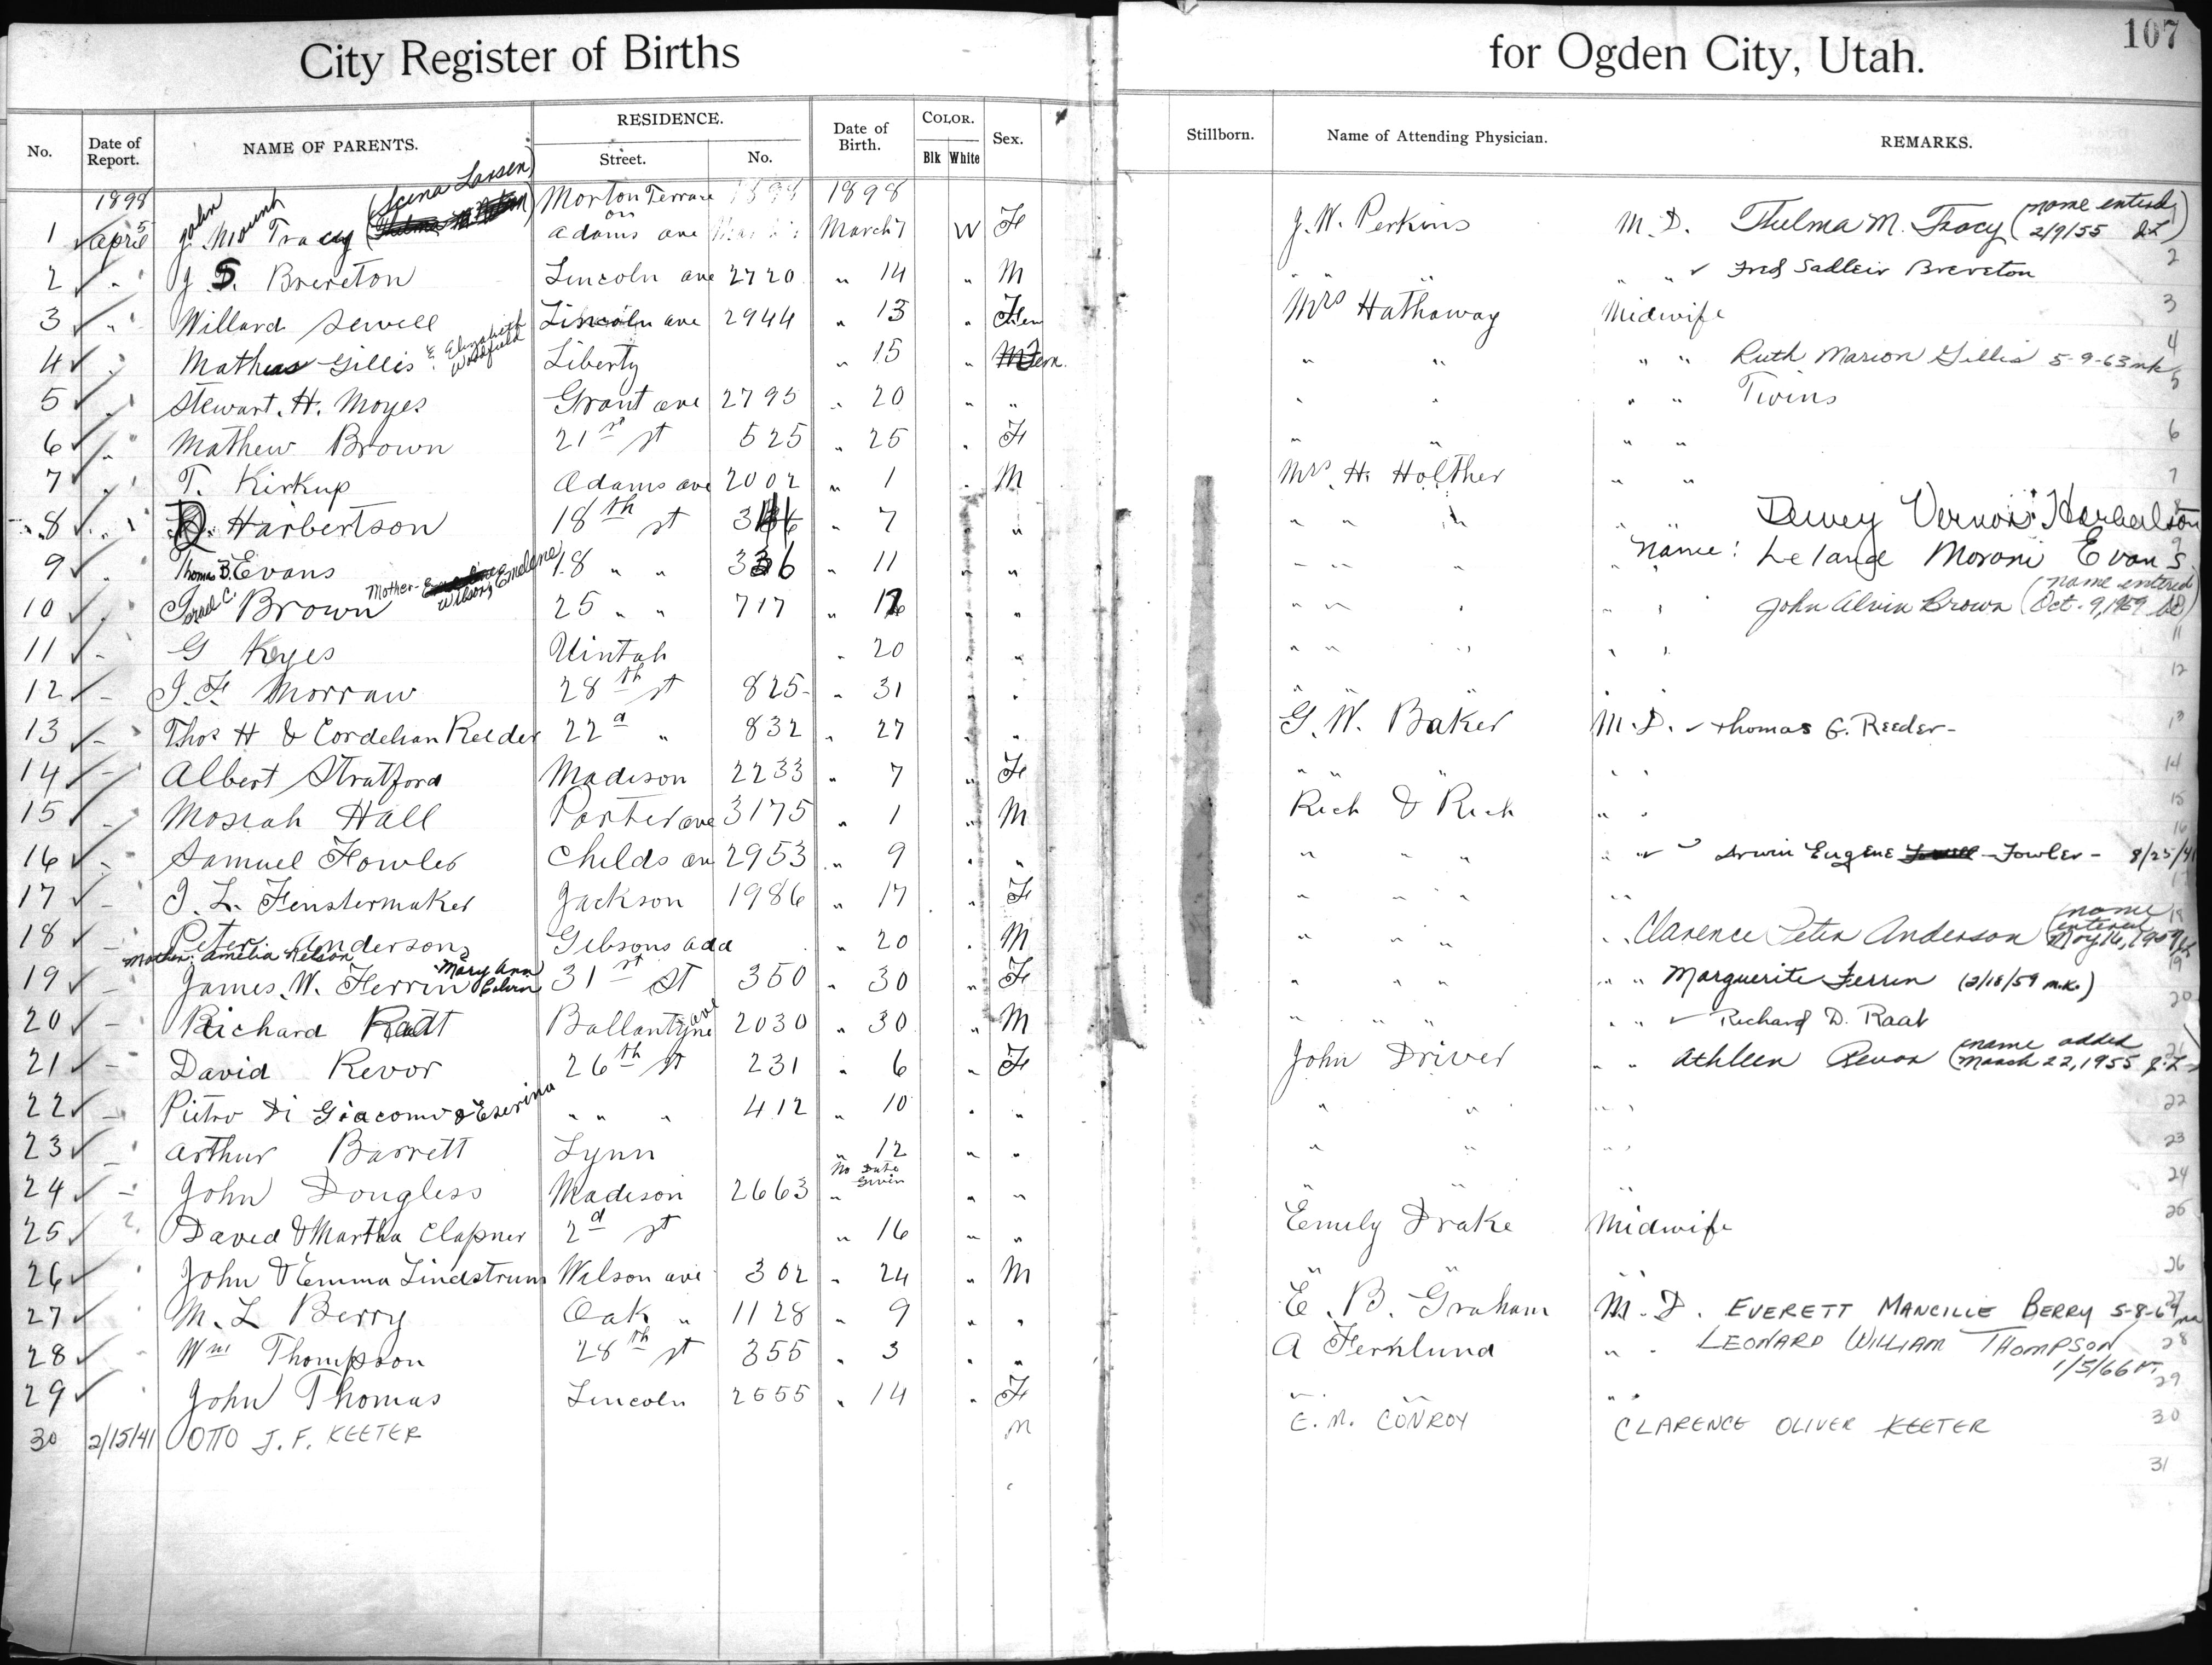 City Register of Births for Ogden City, Utah. 107
No. Date of Report. NAME OF PARENTS. RESIDENCE. Street. No. Date of Birth. COLOR. Blk White Sex. Stillborn. Name of Attending Physician. REMARKS.
1898 Morton Terrace 1898
1 April 5 John Mount Tracy ( Larsen) on Adams ave March 7 W F J. W. Perkins M. D. Thelma M. Tracy (name entered 2/9/55)
2 " J S. Brereton Lincoln ave 2720 " 14 " M " " " " " Fred Sadleir Brereton 2
3 " Willard Sewell Lincoln ave 2944 " 13 " Fem Mrs Hathaway Midwife 3
4 " Mathias Gillis & Elizabeth Woodfield Liberty " 15 " Fem. " " " " Ruth Marion Gillis 5-9-63 mk 4
5 " Stewart. H. Moyes Grant ave 2795 " 20 " " " " " " Twins 5
6 " Mathew Brown 21st st 525 " 25 " F " " " " 6
7 " T. Kirkup Adams ave 2002 " 1 " M Mrs. H. Holther " " 7
8 " D. Harbertson 18th st " 7 " " " " " " " Dewey Vernon Harbertson 8
9 " Thomas B. Evans 18 " " 336 " 11 " " " " " name: Leland Moroni Evans 9
10 " Israel C. Brown Mother- Wilson, Emelene 25 " " 717 " " " " " " " " John Alvin Brown (name entered Oct. 9, 1959)
11 " G Keyes Uintah " 20 " " " " " " " 11
12 " J. F. Morraw 28th st 825 " 31 " " " " " " 12
13 " Thos H & Cordelian Reeder 22d " 832 " 27 " " G. W. Baker M. D. Thomas G. Reeder- 13
14 " Albert Stratford Madison 2233 " 7 " F " " " " " 14
15 " Mosiah Hall Porter ave 3175 " 1 " M Rich & Rich " " 15
16 " Samuel Fowler Childs av 2953 " 9 " " " " " " " Irwin Eugene Fowler - 8/25/41 16
17 " J. L. Fenstermaker Jackson 1986 " 17 " F " " " " "
18 " Peter Anderson Gibsons add " 20 " M " " " " Clarence Peter Anderson (name entered May 16, 1957) 18
Mother: Amelia Nelson
19 " James. W. Ferrin Mary Ann Colvin 31st St 350 " 30 " F " " " " " Marguerite Ferrin (2/18/59 m.k.) 19
20 " Richard Raat Ballantyne ave 2030 " 30 " M " " " " " " Richard D. Raat 20
21 " David Revor 26th st 231 " 6 " F John Driver " " Athleen Revor (name added March 22, 1955 J.L.) 21
22 " Pietro Di Giacomo & Eserina " " " 412 " 10 " " " " " " 22
23 " Arthur Barrett Lynn " 12 " " " " " " 23
24 " John Dougless Madison 2663 No Date Given " " " " " " 24
25 " David & Martha Clapner 2d st " 16 " " Emely Drake Midwife 25
26 " John & Emma Lindstrum Wilson ave 302 " 24 " M " " " " 26
27 " M. L Berry Oak " 1128 " 9 " " E. B. Graham M. D. EVERETT MANCILLE BERRY 5-8-69 27
28 " Wm Thompson 28th st 355 " 3 " " A Fernlund " " LEONARD WILLIAM THOMPSON 1/5/66 28
29 " John Thomas Lincoln 2555 " 14 " F " " " " 29
30 2/15/41 OTTO J. F. KEETER M E. M. CONROY CLARENCE OLIVER KEETER 30
31